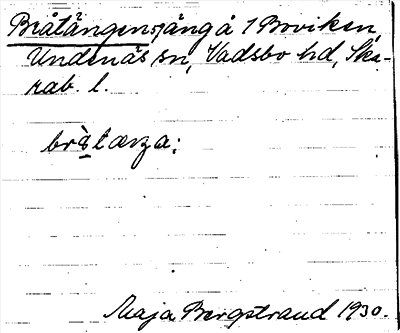 Bråtängen, äng å 1 Boviken,
Undenäs sn, Vadsbo hd, Ska-
rab. l.
bråtæŋa:
Maja Bergstrand 1930.